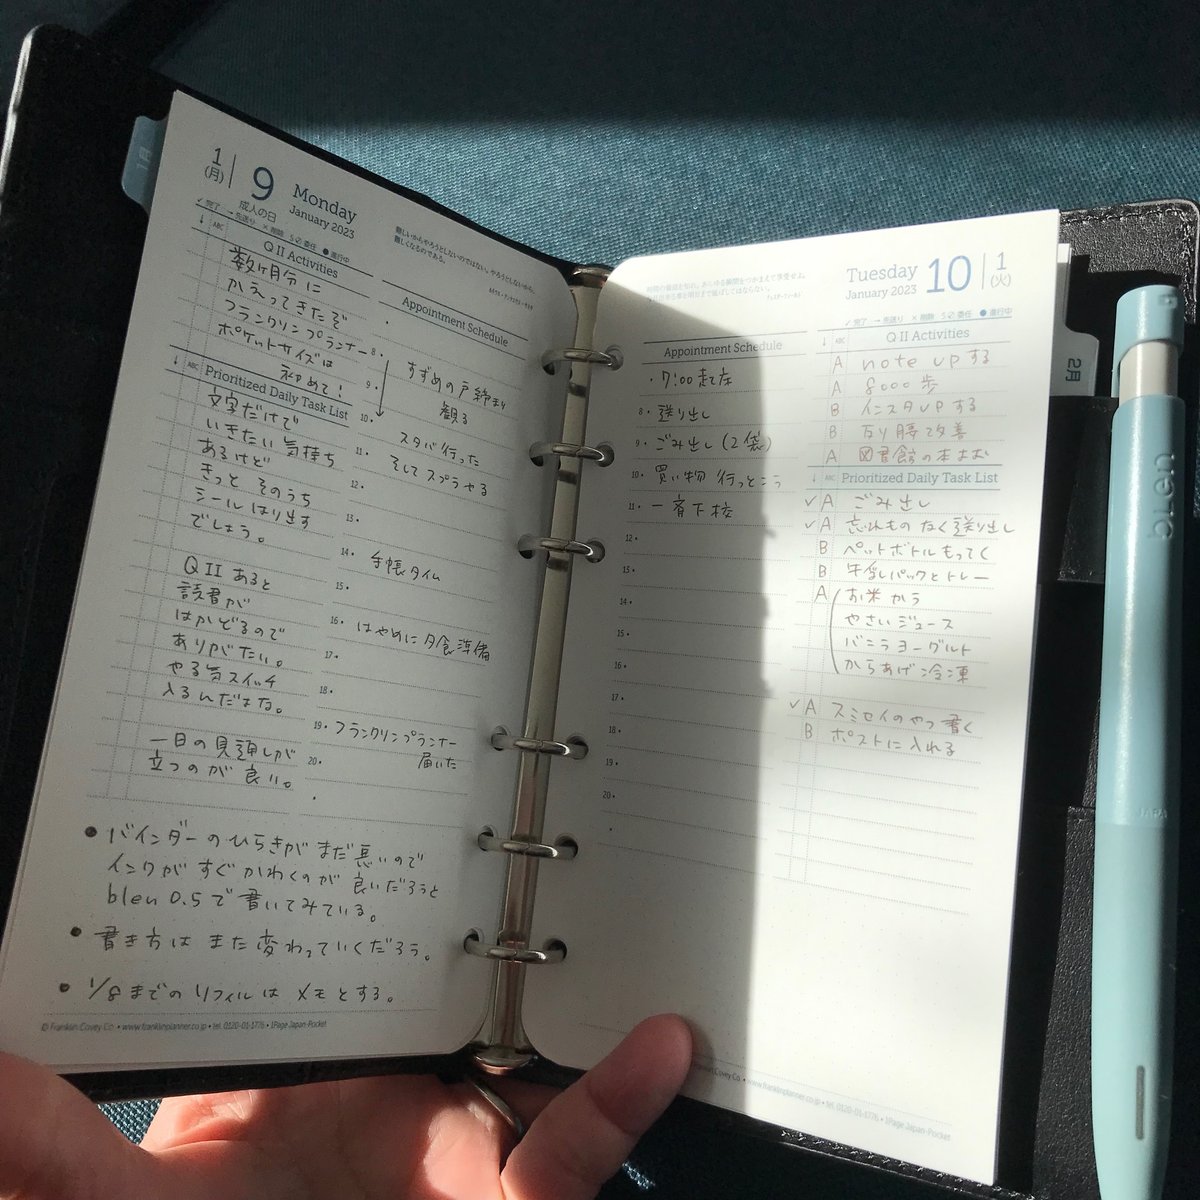 1月
1
(月)
9
成人の日
Monday
January 2023
✓ 完了 → 先送り × 削除 委任 ● 進行中
難しいからやろうとしないのではない。やろうとしないから、
難しくなるのである。
↓ ABC Q II Activities
数ヶ月分に
かえってきたぞ
フランクリンプランナー
ポケットサイズは
初めて!
↓ ABC Prioritized Daily Task List
文字だけで
いきたい気持ち
あるけど
きっと そのうち
シールはり出す
でしょう。
Q II あると
読書が
はかどるので
ありがたい。
やる気スイッチ
入るんだはな。
一日の見頭しが
立つのが良い。
Appointment Schedule
8・ すずめの戸締まり
9・ 観る
10・
11・ スタバ行った
12・ そしてスプラやる
13・
14・ 手帳タイム
15・
16・ はやめに夕食準備
17・
18・
19・ フランクリンプランナー
20・ 届いた
● バインダーのひらきがまだ悪いので
インクがすぐかわくのが良いだろうと
blen 0.5で書いてみている。
● 書き方はまた変わっていくだろう。
● 1/8までのリフィルはメモとする。
© Franklin Covey Co. • www.franklinplanner.co.jp • tel. 0120-01-1776 • 1Page Japan-Pocket
Tuesday
January 2023
10
1
(火)
✓ 完了 → 先送り × 削除 委任 ● 進行中
Appointment Schedule
・7:00 起床
8・ 送り出し
9・ ごみ出し(2袋)
10・ 買い物 行っとこう
11・ 一斉下校
12・
13・
14・
15・
16・
17・
18・
19・
20・
Q II Activities
A note upする
A 8000歩
B インスタupする
B 反り腰改善
A 図書館の本よむ
↓ ABC Prioritized Daily Task List
✓ A ごみ出し
✓ A 忘れものなく送り出し
B ペットボトルもってく
B 牛乳パックとトレー
A お米から
やさいジュース
バニラヨーグルト
からあげ冷凍
✓ A スミセイのやつ書く
B ポストに入れる
Franklin Covey Co • www.franklinplanner.co.jp • tel. 0120-01-1776 • 1Page Japan-Pocket
2月
blen
JAPAN